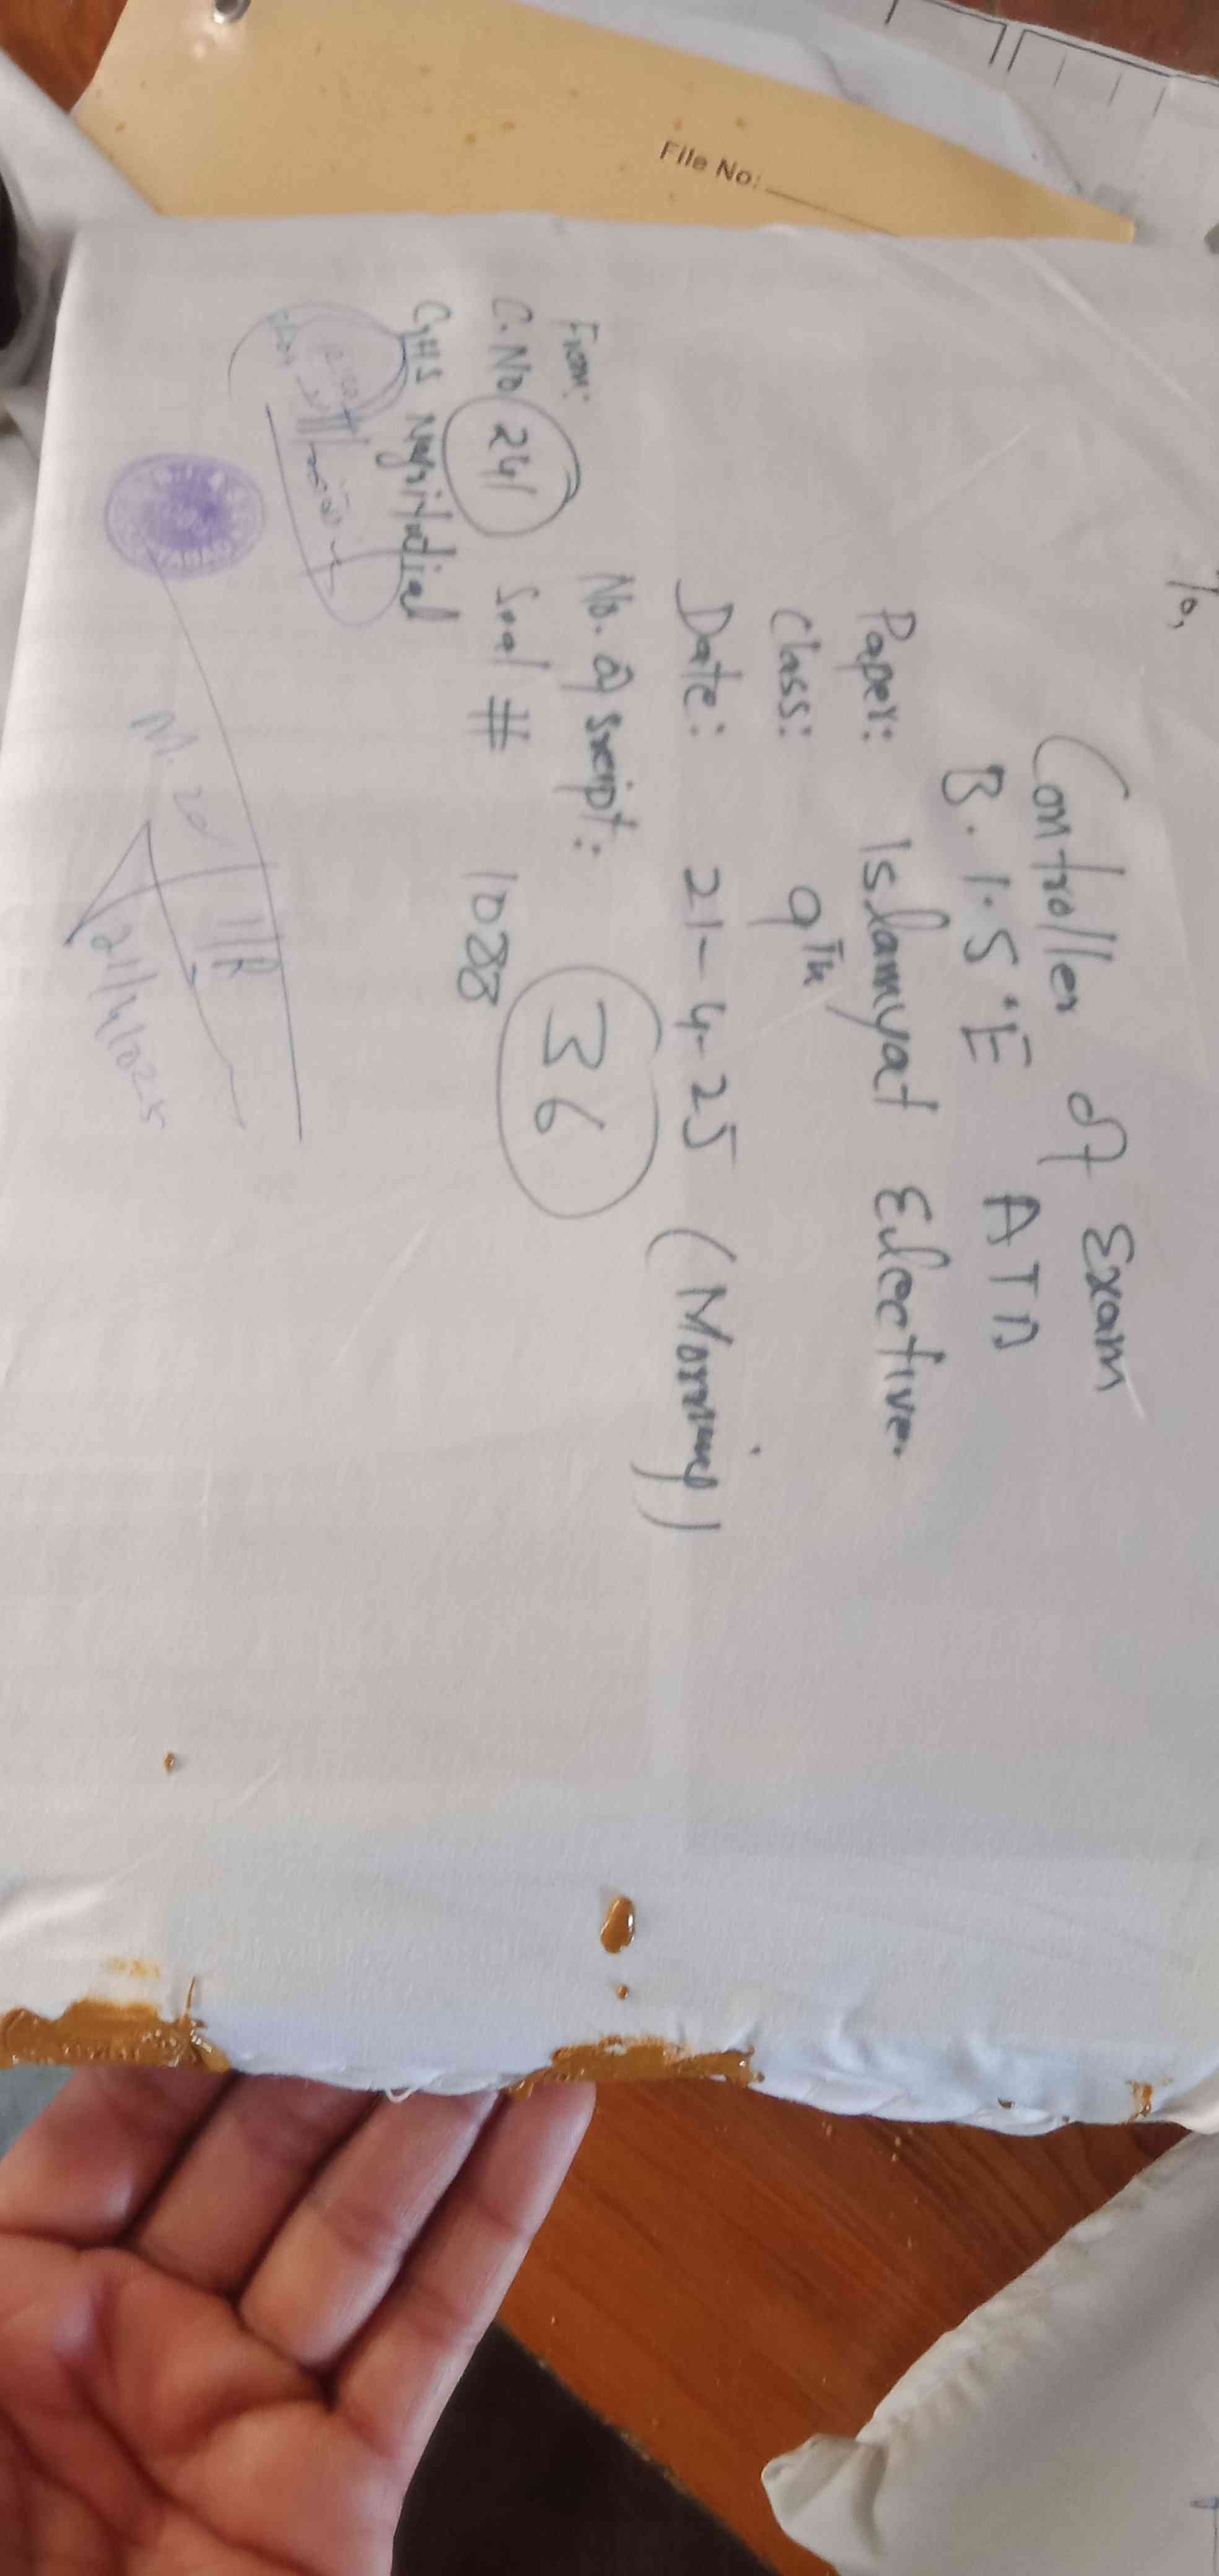 File No:
To,
Controller of Exam
B.I.S.E ATD
Paper: Islamyat Elective.
Class: 9Th
Date: 21-4-25 (Morning)
No. of Script: 36
From:
C.No 241 Seal # 1088
GHS
21/4/2025